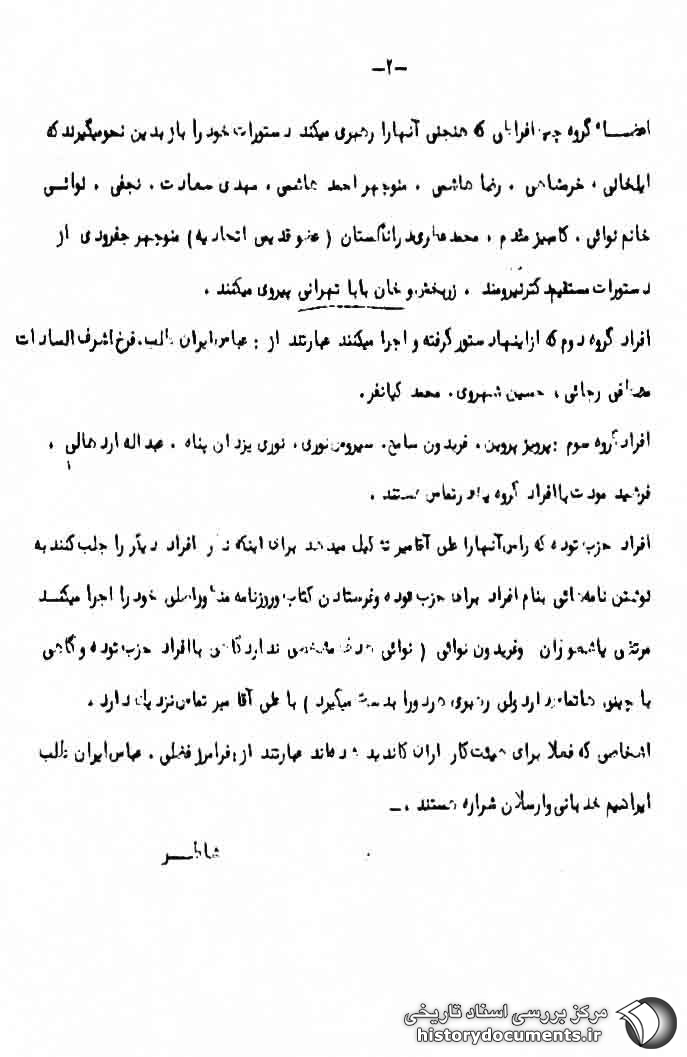 -۲-
اعضاء گروه چپ افراطی که هنجنی آنهارا رهبری میکند دستورات خود را باز بدین نحو میگیرند که
ایلخانی، خرمشاهی، رضا هاشمی، منوچهر احمد هاشمی، مهدی سعادت، نجفی، نوائی
خانم نوائی، کامبیز مقدم، محمد در انگلستان (عضو قدیمی اتحادیه) منوچهر جفرودی از
دستورات مستقیم دکتر نیرومند، زربخش و خان بابا تهرانی پیروی میکنند.
افراد گروه دوم که از اینها دستور گرفته و اجرا میکنند عبارتند از: عباس ایران طلب، فرخ اشرف السادات
مصطفی رجائی، حسین شهروی، محمد کیانفر.
افراد گروه سوم: پرویز پروین، فریدون سامع، سیروس نوری، نوری یزدان پناه، عبداله اردهالی،
فرشید مودت با افراد گروه در تماس هستند.
افراد حزب توده که راس آنهارا علی آقامیر تشکیل میدهد برای اینکه افراد دیگر را جلب کنند به
نوشتن نامه هائی بنام افراد برای حزب توده و فرستادن کتاب و روزنامه منظور اصلی خود را اجرا میکنند
مرتضی وفریدون نوائی (نوائی هدف مشخصی ندارد گاهی با افراد حزب توده و گاهی
با چینی ها تماس دارد ولی رهبری هر دورا بدست میگیرد) با علی آقا میر تماس نزدیک دارد.
اشخاصی که فعلا برای هیئت کار اران کاندید شده اند عبارتند از: فرامرز فضلی، عباس ایران طلب
ابراهیم وارسلان شراره هستند.-
مرکز بررسی اسناد تاریخی
historydocuments.ir